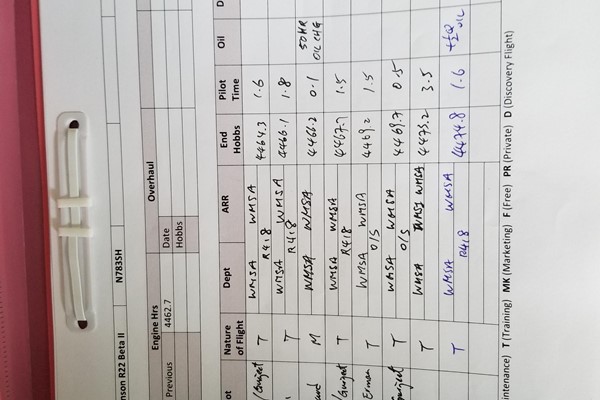 nson R22 Beta II N783SH
Engine Hrs Overhaul
Previous 4462.7 Date
Hobbs
ot Nature of Flight Dept ARR End Hobbs Pilot Time Oil D
T WMSA R418 WMSA 4464.3 1.6
T WMSA R418 WMSA 4466.1 1.8
M WMSA WMSA 4466.2 0.1 50HR OIL CHG
T WMSA R418 WMSA 4467.7 1.5
Erman T WMSA O/S WMSA 4469.2 1.5
T WMSA O/S WMSA 4469.7 0.5
T WMSA WMSA 4473.2 3.5
T WMSA R418 WMSA 4474.8 1.6 +½Q OIL
intenance) T (Training) MK (Marketing) F (Free) PR (Private) D (Discovery Flight)